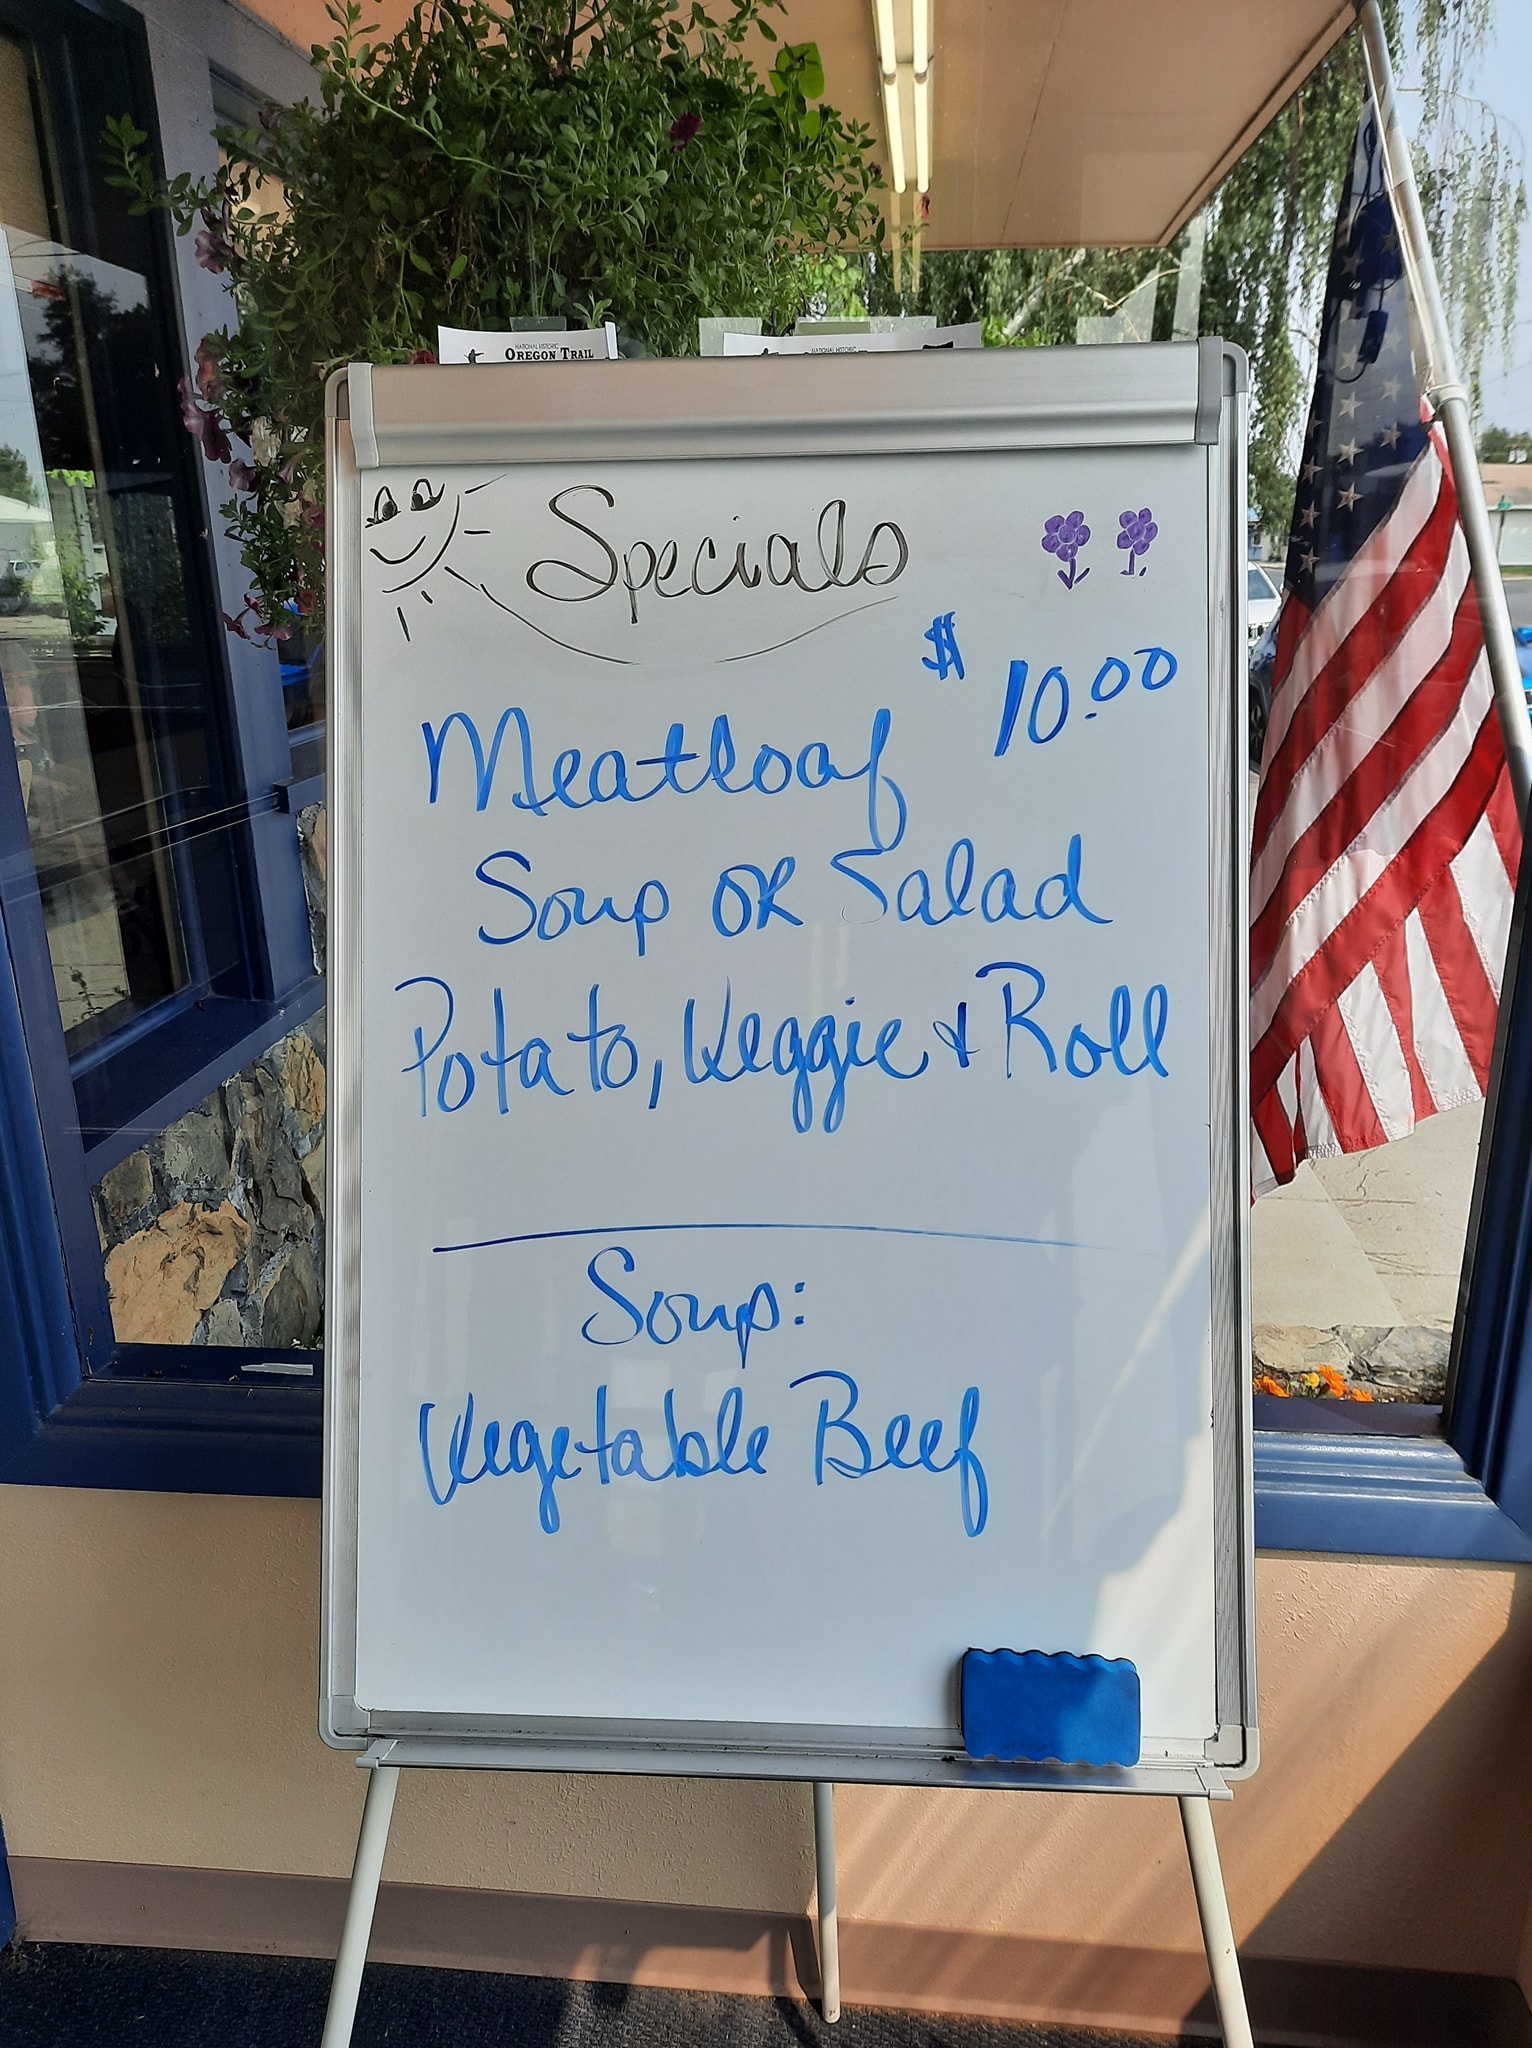 NATIONAL HISTORIC
OREGON TRAIL
NATIONAL HISTORIC
Specials
$ 10.00
Meatloaf
Soup OR Salad
Potato, Veggie & Roll
Soup:
Vegetable Beef